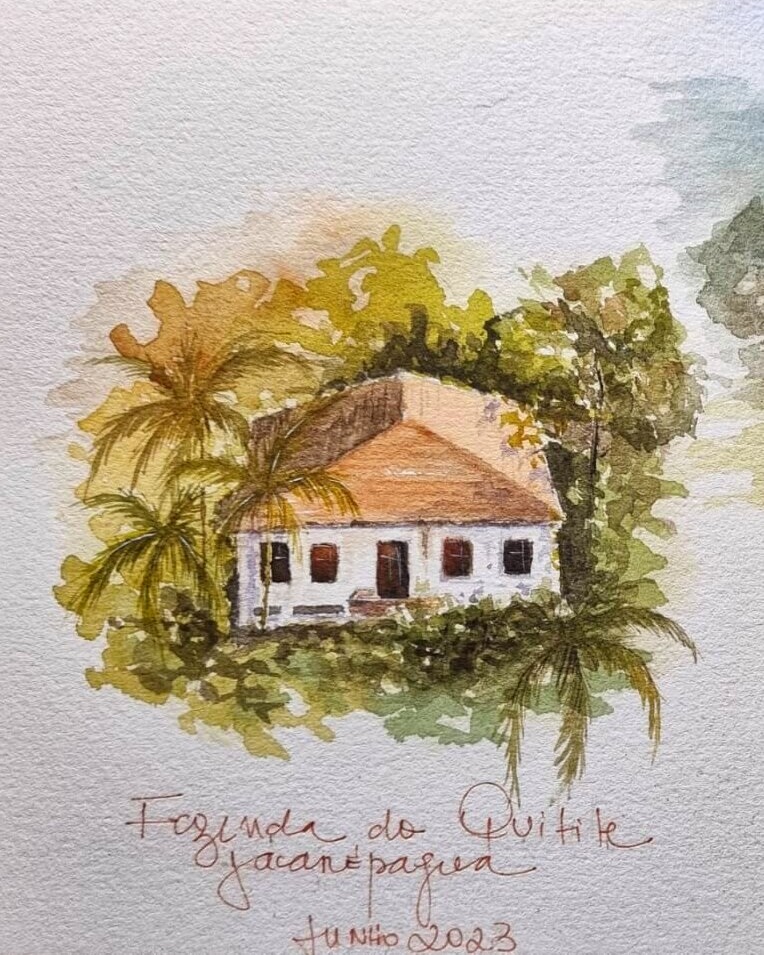 Fazenda do Quitite
jacarépagua
JUNHO 2023